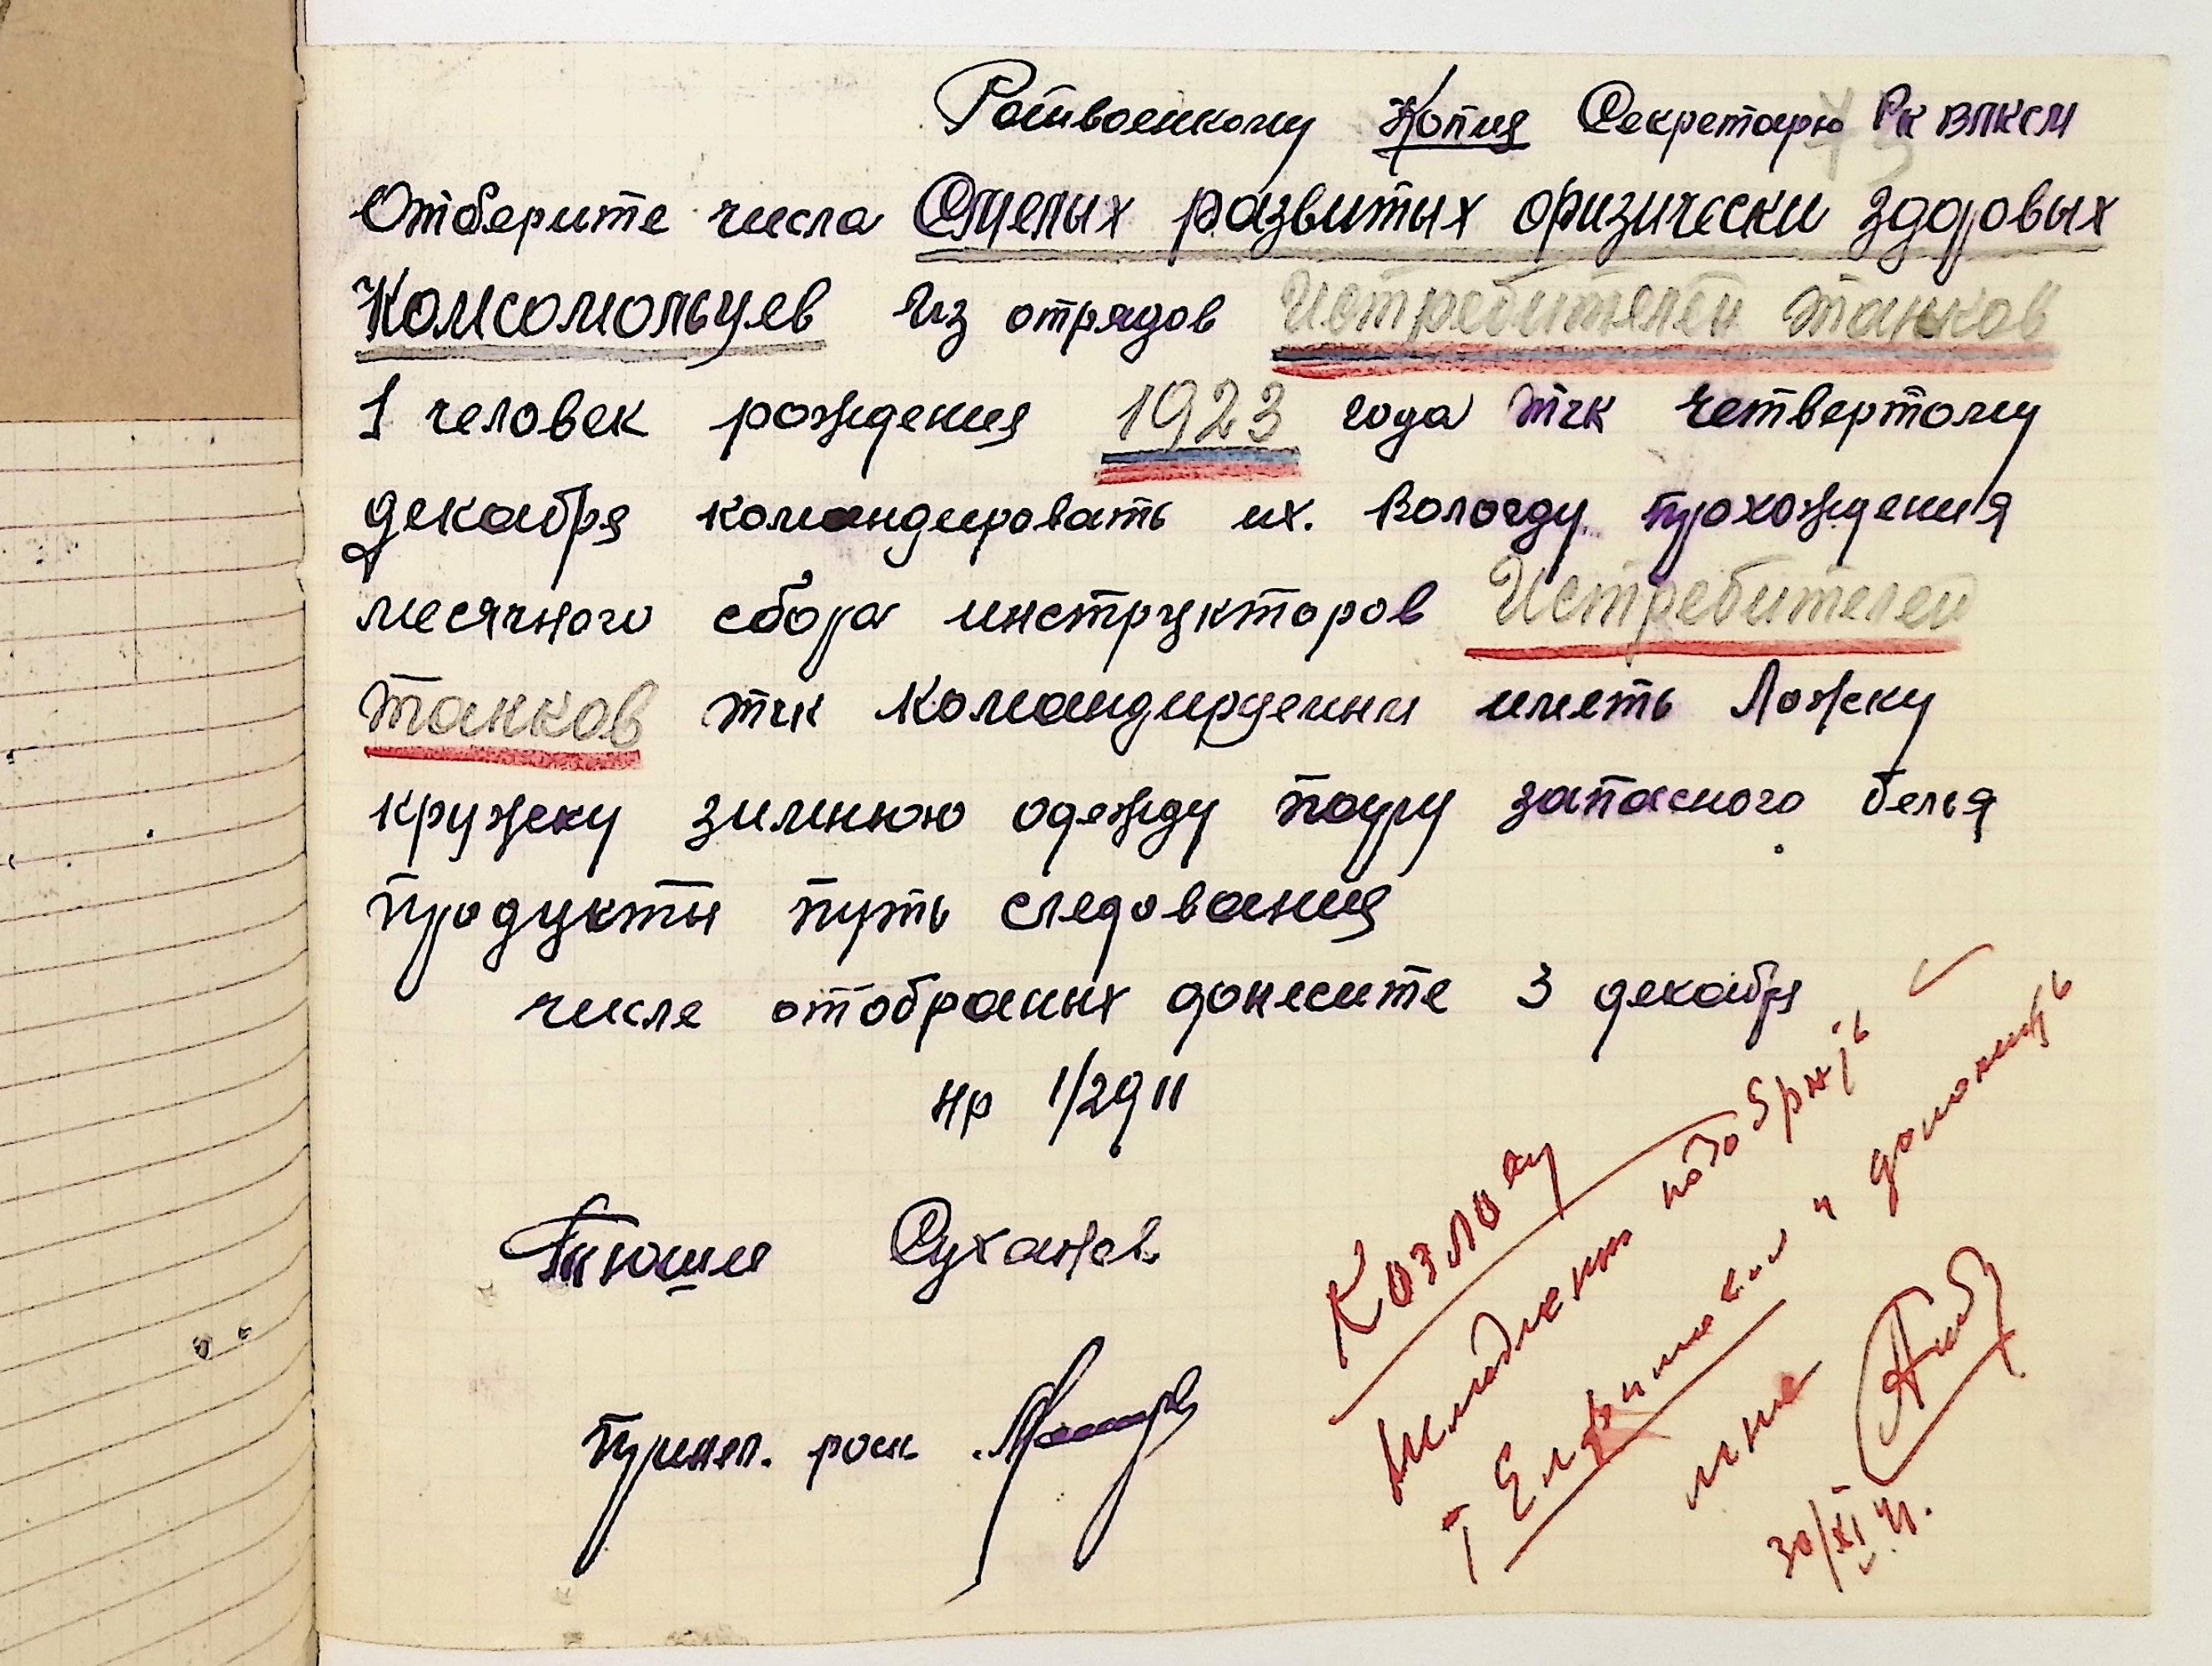 Ротвоенкому Копия Секретарю Рк ВЛКСМ
Отберите числа Смелых развитых физически здоровых
Комсомольцев Из отрядов Истребителей танков
1 человек рождения 1923 года тчк четвертому
декабря командировать их. Вологду прохождения
месячного сбора инструкторов Истребителей
танков тчк Командирдении иметь Ложку
кружку зимнюю одежду пару запасного белья
продукты путь следования
числе отобраных донесите 3 декабря
нр 1/2911
Тюшин Суханов
Принял.
Козлову
немедленно подобрать
т Ефимовым и доложить
мне
30/XI 41.